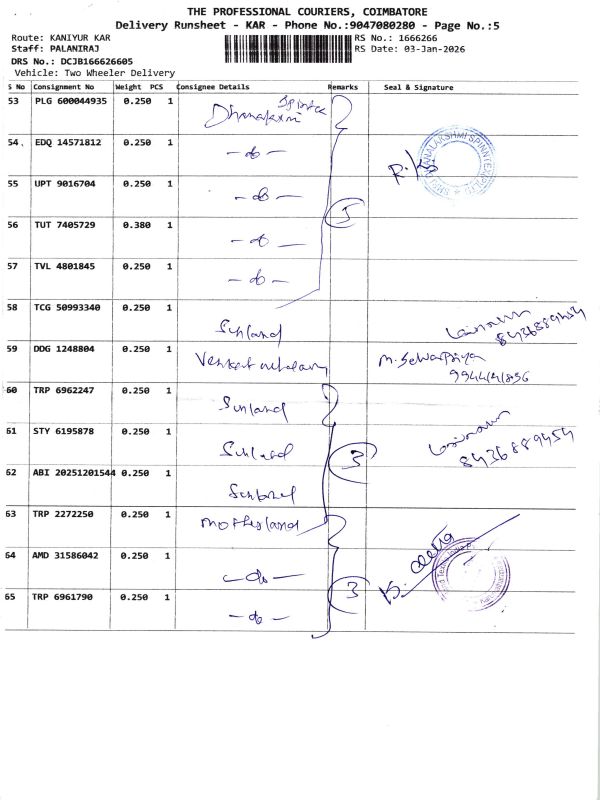 THE PROFESSIONAL COURIERS, COIMBATORE
Delivery Runsheet - KAR - Phone No.:9047080280 - Page No.:5
Route: KANIYUR KAR
RS No.: 1666266
Staff: PALANIRAJ
RS Date: 03-Jan-2026
DRS No.: DCJB166626605
Vehicle: Two Wheeler Delivery
S No Consignment No Weight PCS Consignee Details Remarks Seal & Signature
53 PLG 600044935 0.250 1
54. EDQ 14571812 0.250 1 -do-
55 UPT 9016704 0.250 1 -do- 5
56 TUT 7405729 0.380 1 -do-
57 TVL 4801845 0.250 1 -do-
58 TCG 50993340 0.250 1 Sunland
59 DDG 1248804 0.250 1 Venkat
60 TRP 6962247 0.250 1 Sunland
61 STY 6195878 0.250 1 Sunland 3 8436889454
62 ABI 20251201544 0.250 1 Sunland
63 TRP 2272250 0.250 1 motherland
64 AMD 31586042 0.250 1 -do-
65 TRP 6961790 0.250 1 -do- 3